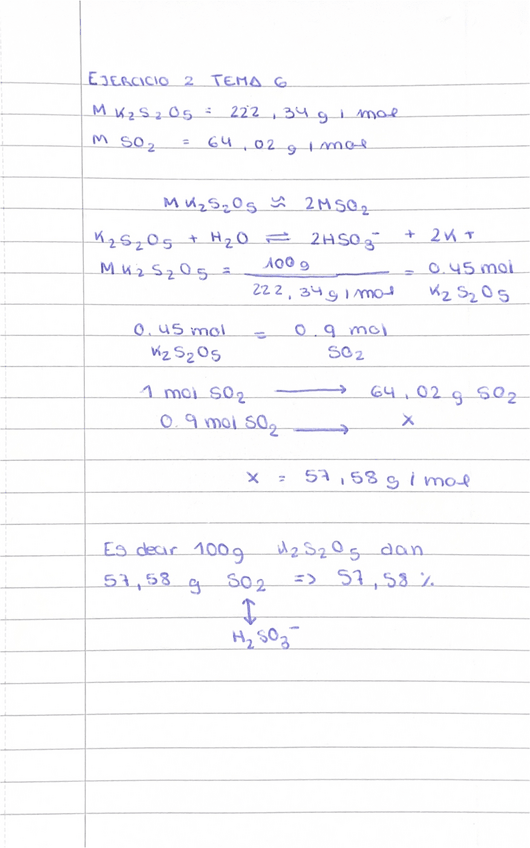 EJERCICIO 2 TEMA 6
M K2S2O5 = 222,34 g/mol
M SO2 = 64,02 g/mol
M K2S2O5 ≈ 2MSO2
K2S2O5 + H2O ⇌ 2HSO3⁻ + 2K+
M K2S2O5 = 100g / 222,34 g/mol = 0.45 mol K2S2O5
0.45 mol K2S2O5 = 0.9 mol SO2
1 mol SO2 → 64,02 g SO2
0.9 mol SO2 → X
X = 57,58 g/mol
Es decir 100g K2S2O5 dan
57,58 g SO2 => 57,58 %
↕
H2SO3⁻